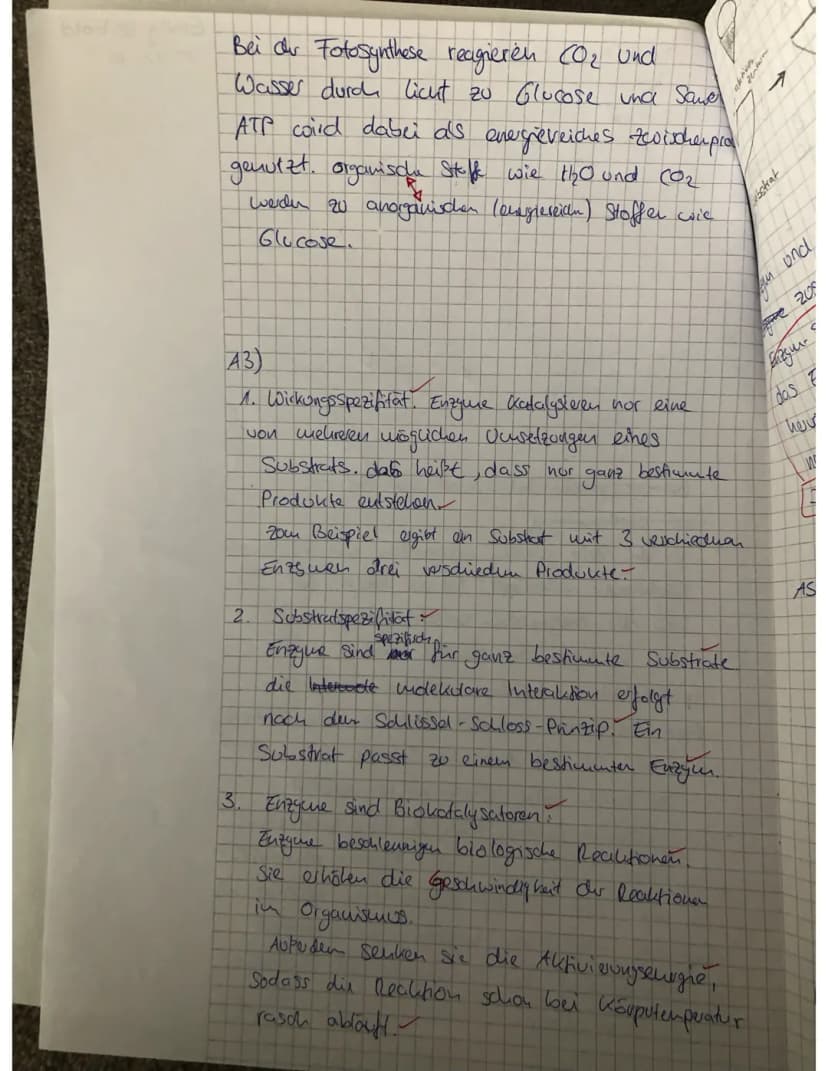 Bei der Fotosynthese reagieren CO2 und
Wasser durch Licht zu Glucose und Sauer
ATP wird dabei als energiereiches Zwischenpro
genutzt. organische Stoffe wie H2O und CO2
werden zu anorganischen (energiereichen) Stoffen wie
Glucose.
A3)
1. Wirkungsspezifität. Enzyme katalysieren nur eine
von mehreren möglichen Umsetzungen eines
Substrats. das heißt, dass nur ganz bestimmte
Produkte entstehen.
zum Beispiel ergibt ein Substrat mit 3 verschiedenen
Enzymen drei verschieden Produkte.
2. Substratspezifität:
spezifisch
Enzyme sind für ganz bestimmte Substrate
die molekulare Interaktion erfolgt
nach dem Schlüssel-Schloss-Prinzip. Ein
Substrat passt zu einem bestimmten Enzym.
3. Enzyme sind Biokatalysatoren:
Enzyme beschleunigen biologische Reaktionen.
Sie erhöhen die Geschwindigkeit der Reaktionen
im Organismus.
Außerdem senken sie die Aktivierungsenergie,
sodass die Reaktion schon bei Körpertemperatur
rasch abläuft.
substrat
und
Enzyme
das E
AS